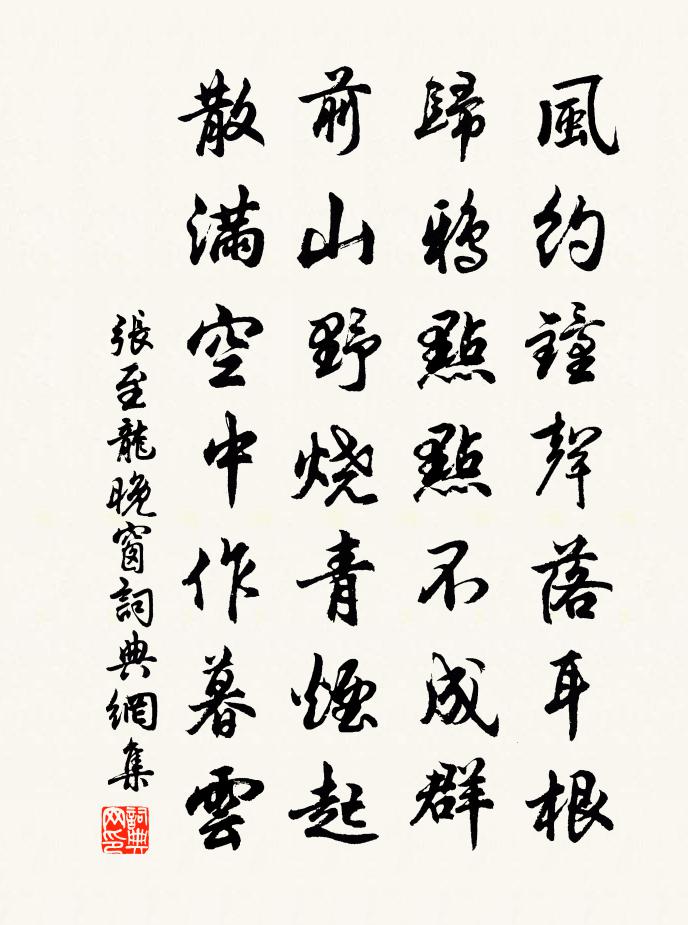 風約鐘聲落耳根
歸鴉點點不成群
前山野燒青煙起
散滿空中作暮雲
張至龍晚窗詞典網集
詞典网印